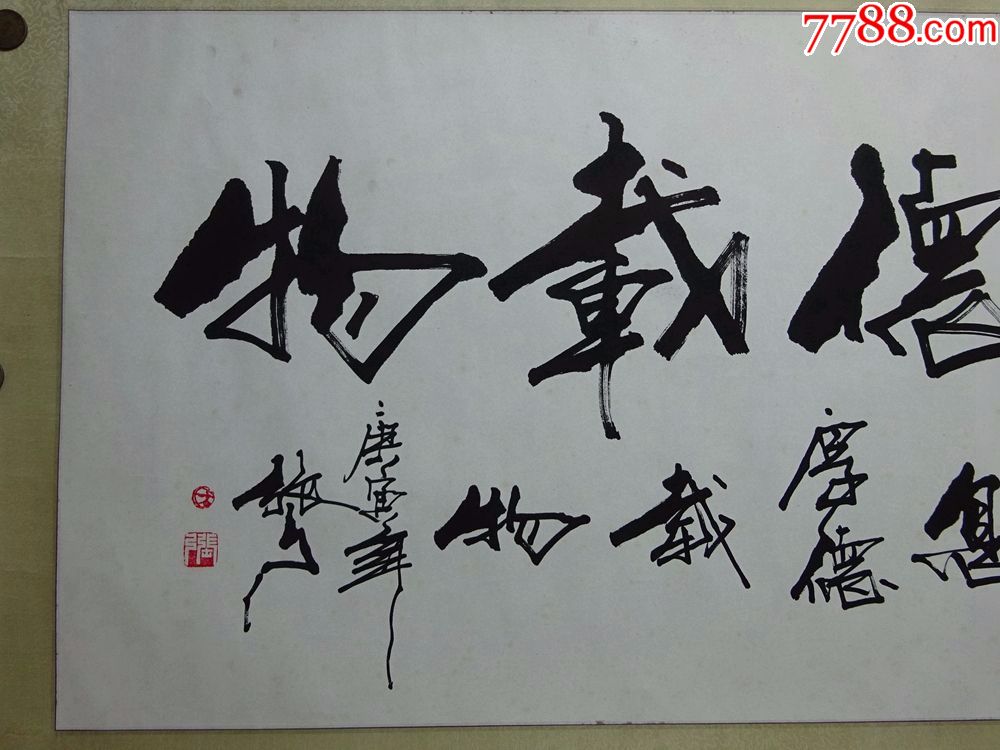 7788.com
德載物
息
厚德
載
物
庚寅年